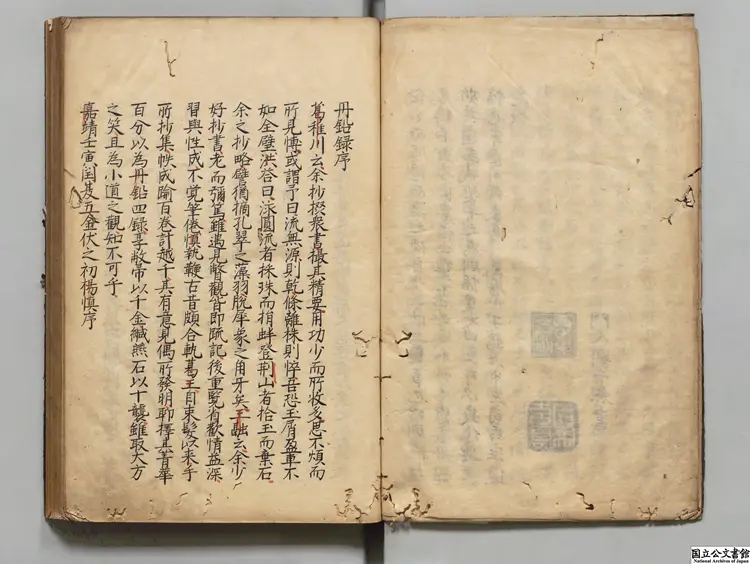 丹鉛録序
葛稚川云余抄掇衆書撮其精要用功少而所收多思不煩而
所見博或謂予曰流無源則乾條離株則悴吾恐玉屑盈車不
如全璧洪答曰泳圓流者採珠而捐蚌登荊山者拾玉而棄石
余之抄略譬猶摘孔翠之藻羽脱犀象之角牙矣王融云余少
好抄書老而彌篤雖遇見瞥觀皆即疏記後重覽省歡情益深
習與性成不覺筆倦慎執鞭古昔頗合軌葛王自束髮以來手
所抄集帙成踰百卷計越千其有意見偶所發明聊擇其菁華
百分以為丹鉛四録享敝帚以千金緘燕石以十襲雖取大方
之笑且為小道之觀知不可乎
嘉靖壬寅閏五金伏之初楊慎序
国立公文書館
National Archives of Japan